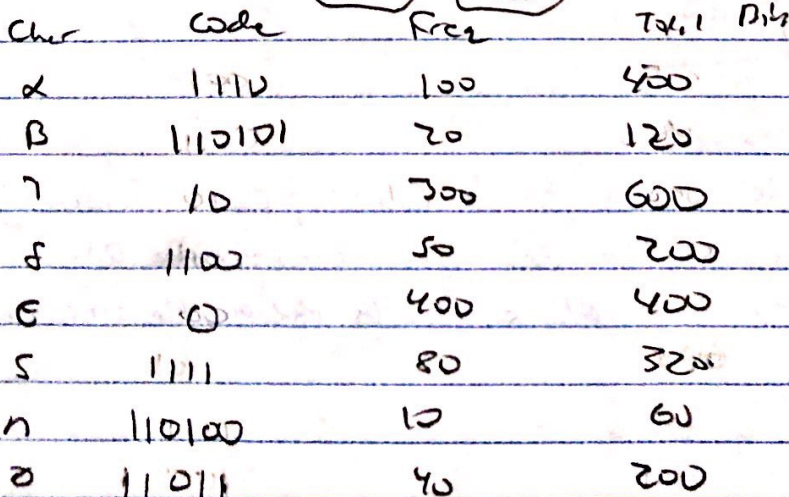 Char Code Freq Total Bits
α 1110 100 400
β 110101 20 120
γ 10 300 600
δ 1100 50 200
ε 0 400 400
ζ 1111 80 320
η 110100 10 60
θ 11011 40 200